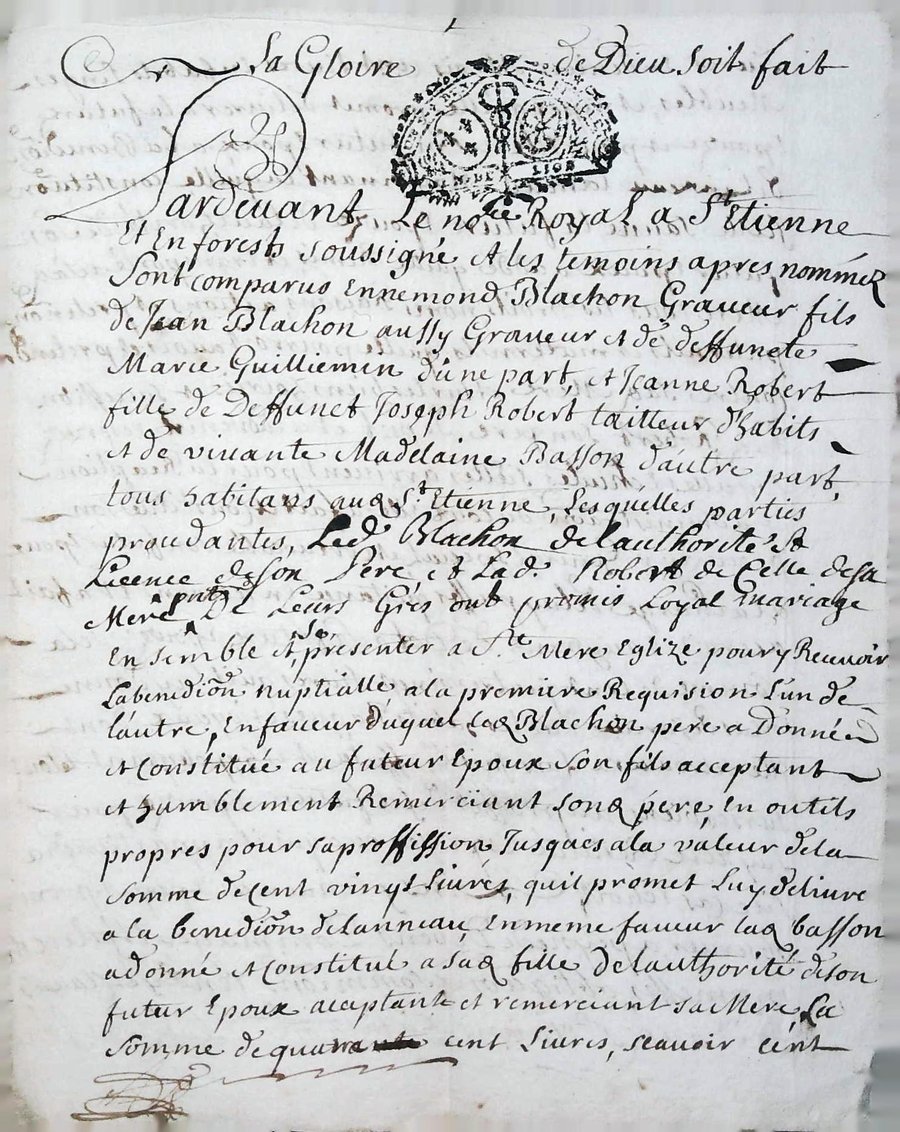 la Gloire de Dieu soit fait
Pardevant Le no.re Royal a St Etienne
Et En forests soussigné et les temoins apres nommez
Sont comparus Ennemond Blachon Graveur fils
de Jean Blachon aussy Graveur et de deffuncte
Marie Guilliemin d'une part, et Jeanne Robert
fille de Deffunct Joseph Robert tailleur d'habits
et de vivante Madelaine Basson d'autre part,
tous habitans aud St Etienne, Lesquelles parties
procedantes, Led. Blachon de lauthorité et
Licence de son Pere, et Lad. Robert de Celle de sa
Mere pntz De Leurs Grés ont promis Loyal mariage
Ensemble et se présenter a Ste Mere Eglize pour y Recevoir
La benediõn nuptialle a la premiere Requision L'un de
l'autre, En faveur duquel Led Blachon pere a Donné
et Constitué au futeur Epoux Son fils acceptant
et humblement Remerciant sond père, En outils
propres pour sa proffission Jusques a la valeur de la
somme de cent vingt Livrés, quil promet Luy delivre
a la benediõn de lanneau, En meme faveur lad basson
a donné et Constitué a sad fille de lauthorité de son
futur Epoux acceptante et remerciant sa Mere, La
somme de quatre cent Livres, scavoir cént